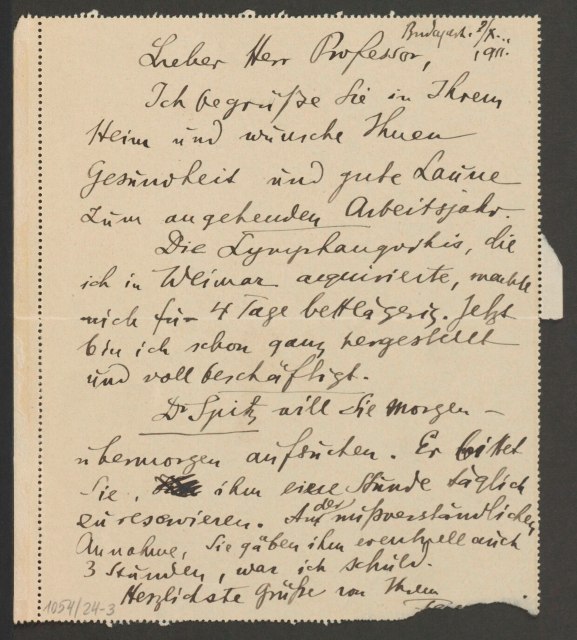 Budapest. 2/X...
1911.
Lieber Herr Professor,
Ich begrüße Sie in Ihrem
Heim und wünsche Ihnen
Gesundheit und gute Laune
zum angehenden Arbeitsjahr.
Die Lymphangoitis, die
ich in Weimar acquirierte, machte
mich für 4 Tage bettlägerig. Jetzt
bin ich schon ganz hergestellt
und voll beschäftigt.
Dr Spitz will Sie morgen –
übermorgen aufsuchen. Er bittet
Sie, ihm eine Stunde täglich
zu reservieren. An der mißverständlichen
Annahme, Sie gäben ihm eventuell auch
3 Stunden, war ich schuld.
Herzlichste Grüße von Ihrem
1054/24-3